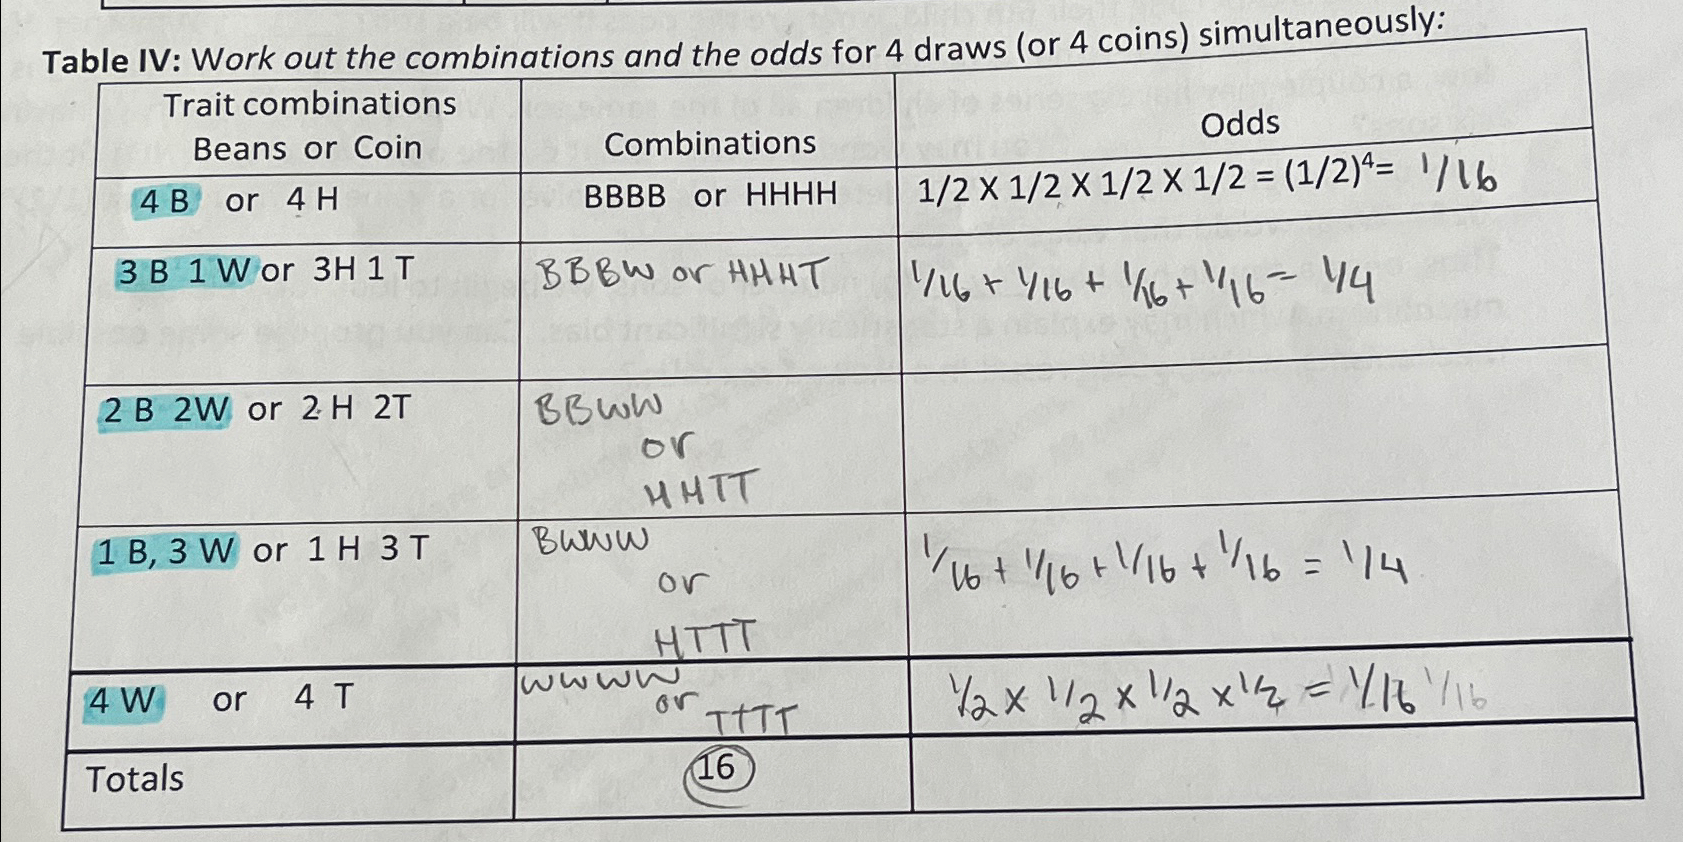 Table IV: Work out the combinations and the odds for 4 draws (or 4 coins) simultaneously:
Trait combinations
Beans or Coin
Combinations
Odds
4 B or 4 H
BBBB or HHHH
1/2 X 1/2 X 1/2 X 1/2 = (1/2)⁴= 1/16
3 B 1 W or 3H 1 T
BBBW or HHHT
1/16 + 1/16 + 1/16 + 1/16 = 1/4
2 B 2W or 2 H 2T
BBWW
or
HHTT
1 B, 3 W or 1 H 3 T
BWWW
or
HTTT
1/16 + 1/16 + 1/16 + 1/16 = 1/4
4 W or 4 T
WWWW
or
TTTT
1/2 x 1/2 x 1/2 x 1/2 = 1/16 1/16
Totals
16